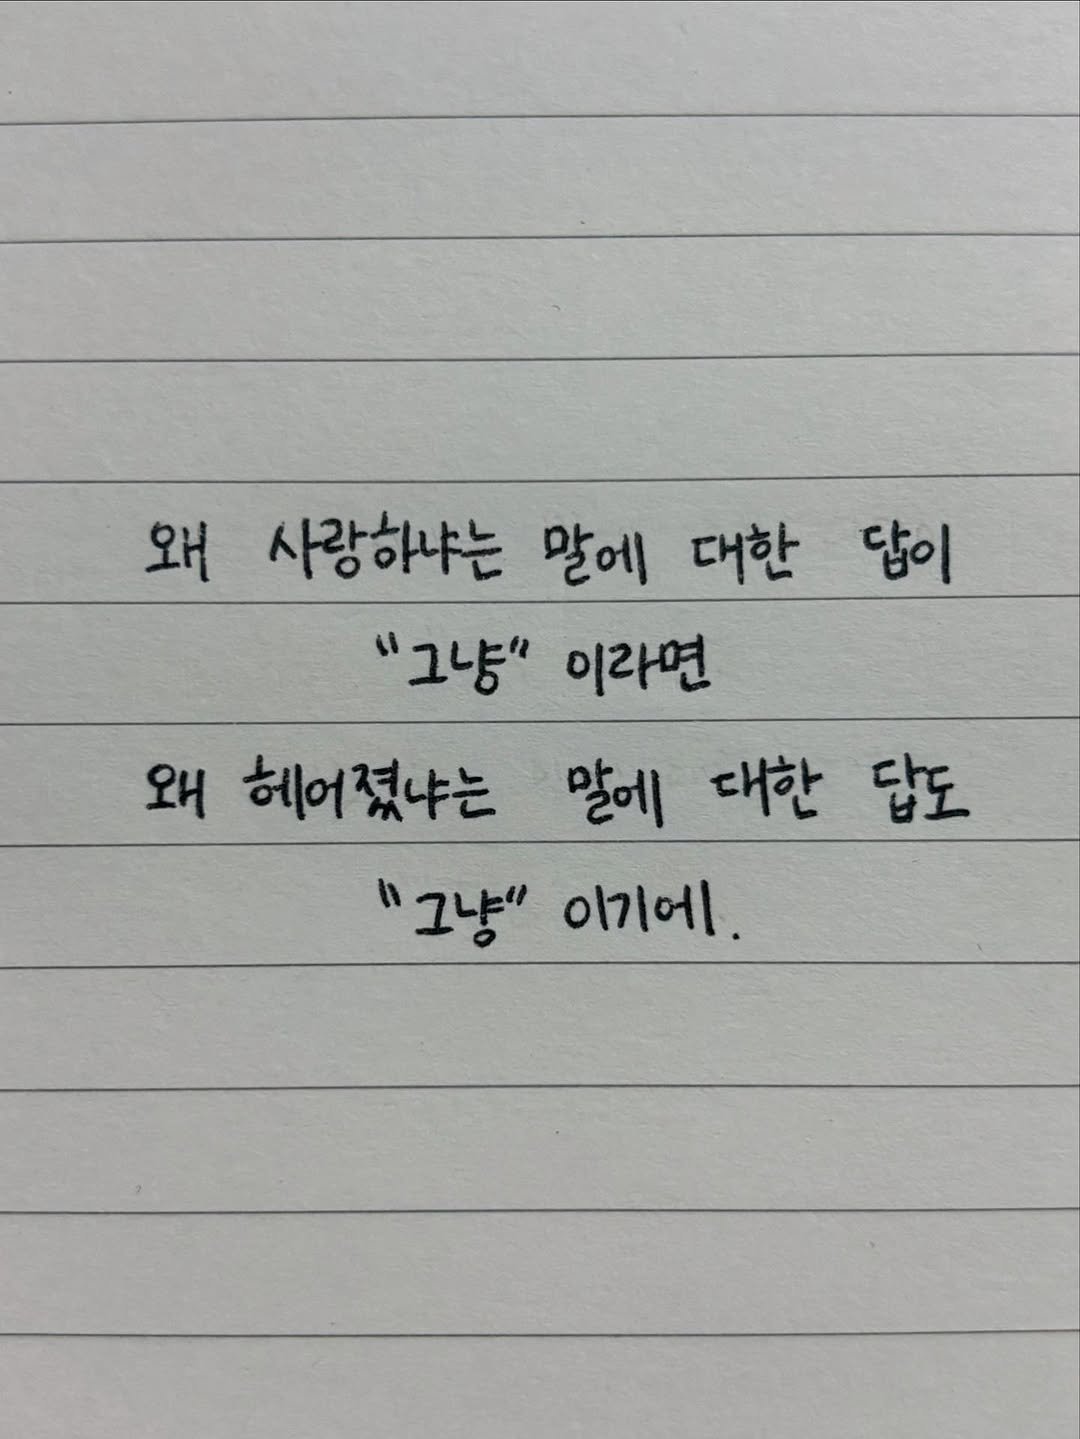 왜 사랑하냐는 말에 대한 답이
"그냥" 이라면
왜 헤어졌냐는 말에 대한 답도
"그냥" 이기에.